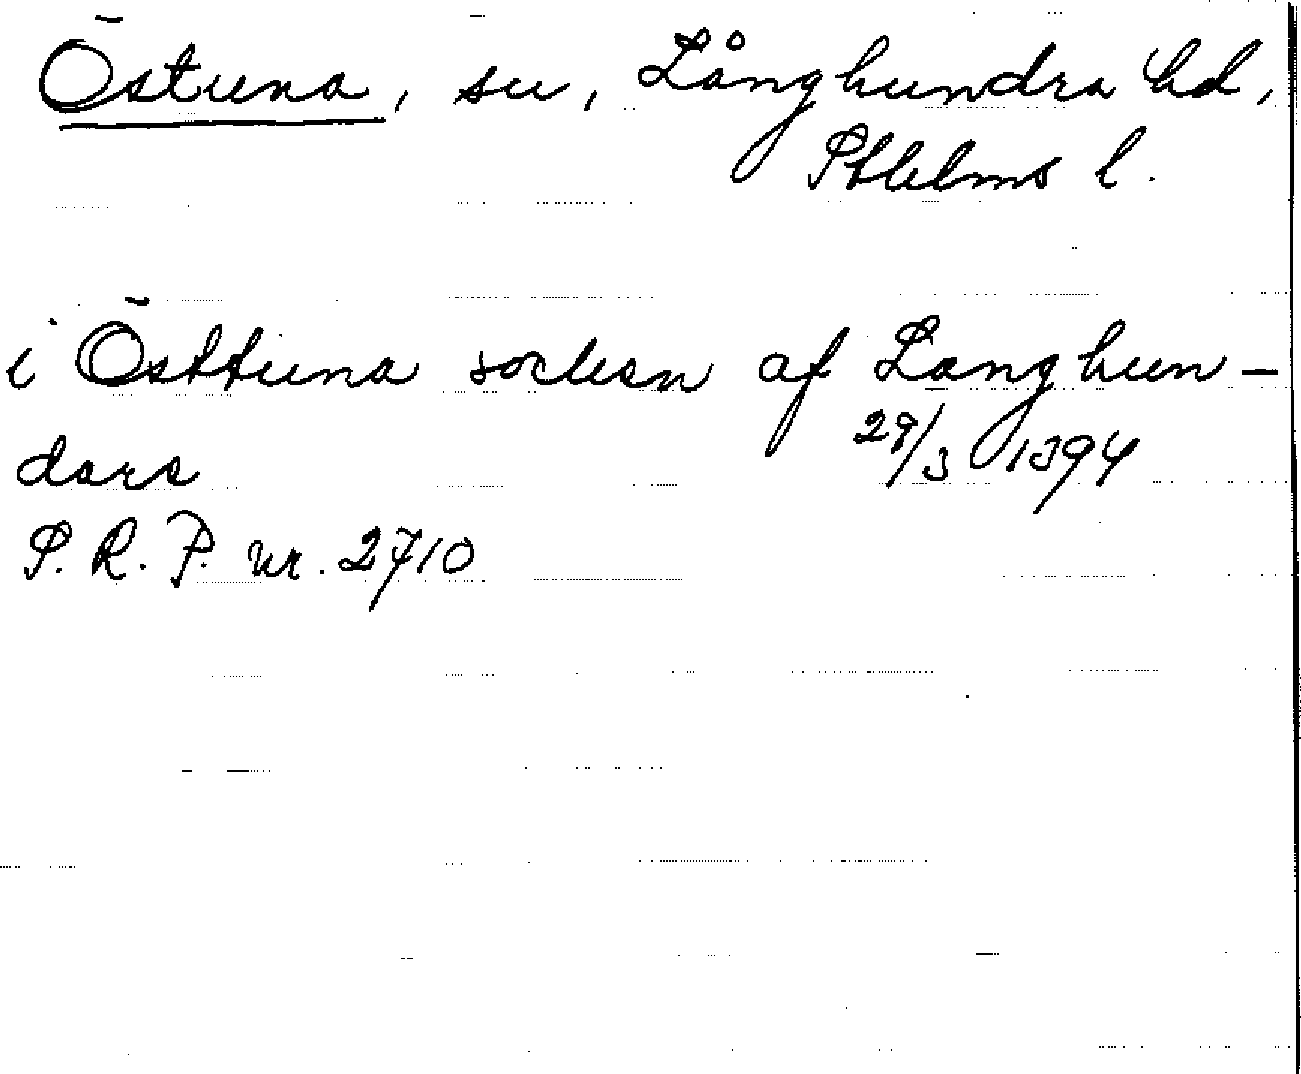 Östuna, sn, Långhundra hd,
Sthlms l.
i Östtuna soclken af Langhun-
dara 29/3 1394
S. R. P. nr. 2710